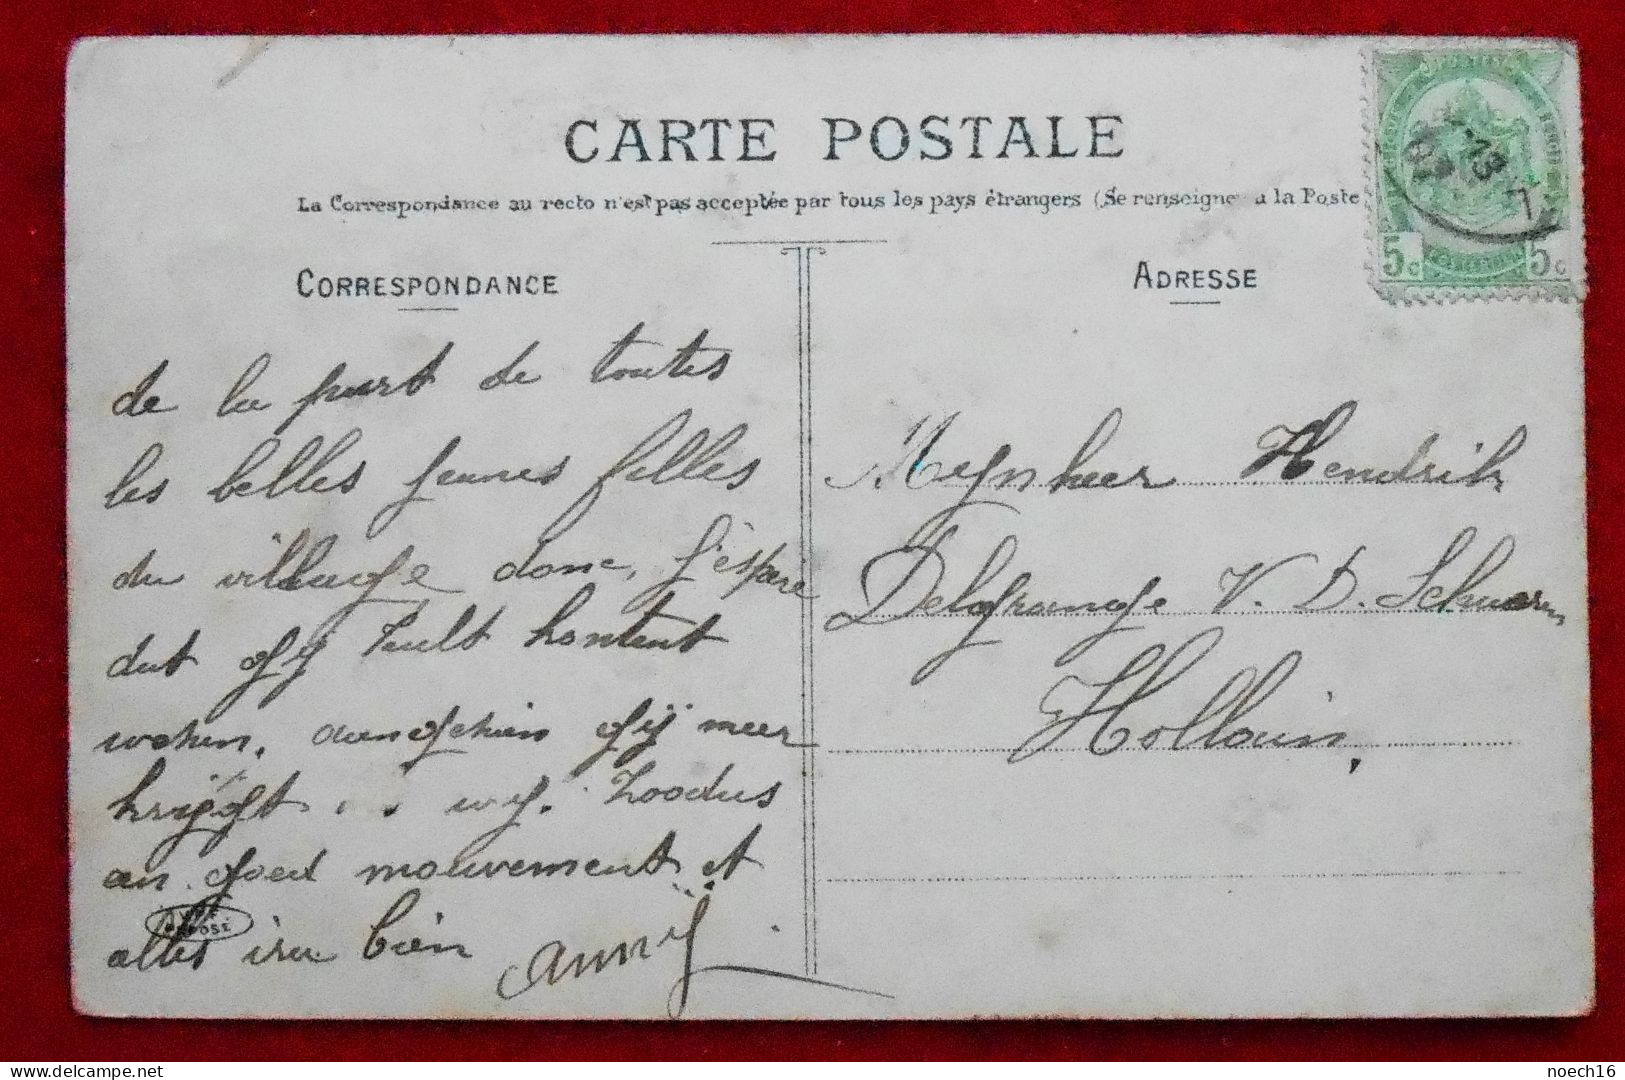 CARTE POSTALE
La Correspondance au recto n'est pas acceptée par tous les pays étrangers (Se renseigner à la Poste
CORRESPONDANCE
ADRESSE
5c 5c
de la part de toutes
les belles jeunes filles
du village donc, j'éspère
dat gy zult kontent
weken, aangehien gij meer
krijgt . . wy. Zoodus
an goed mouvement et
alles ira bien
Annÿ
Meynheer Hendrik
Delgrange V. D. Schueren
Hollain,
DÉPOSÉ
noech16